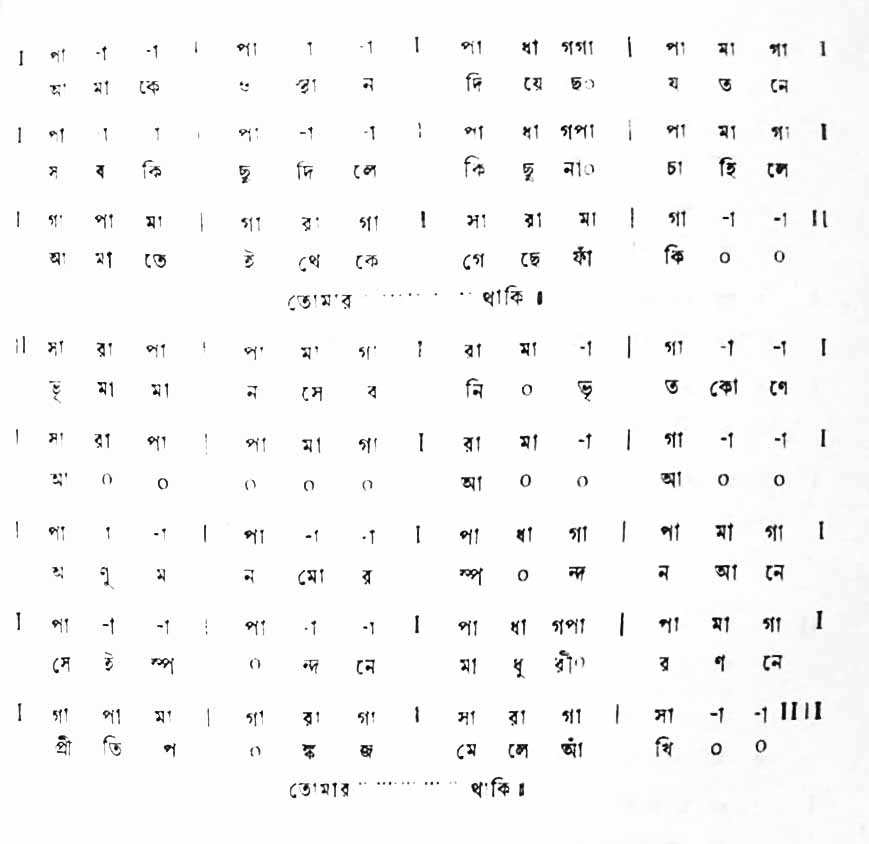 I পা -া -া | পা া -া I পা ধা গগা | পা মা গা I
আ মা কে ও স্থা ন দি য়ে ছ০ য ত নে
I পা া া | পা -া -া I পা ধা গপা | পা মা গা I
স ব কি ছু দি লে কি ছু না০ চা হি লে
I গা পা মা | গা রা গা I সা রা মা | গা -া -া II
আ মা তে ই থে কে গে ছে ফাঁ কি ০ ০
তোমার ............ থাকি ॥
II সা রা পা | পা মা গা I রা মা -া | গা -া -া I
ভূ মা মা ন সে ব নি ০ ভৃ ত কো ণে
I সা রা পা | পা মা গা I রা মা -া | গা -া -া I
আ ০ ০ ০ ০ ০ আ ০ ০ আ ০ ০
I পা া -া | পা -া -া I পা ধা গা | পা মা গা I
অ ণু ম ন মো র স্প ০ ন্দ ন আ নে
I পা -া -া | পা -া -া I পা ধা গপা | পা মা গা I
সে ই স্প ০ ন্দ নে মা ধু রী০ র ণ নে
I গা পা মা | গা রা গা I সা রা গা | সা -া -া IIII
প্রী তি প ০ ঙ্ক জ মে লে আঁ খি ০ ০
তোমার ............ থাকি ॥